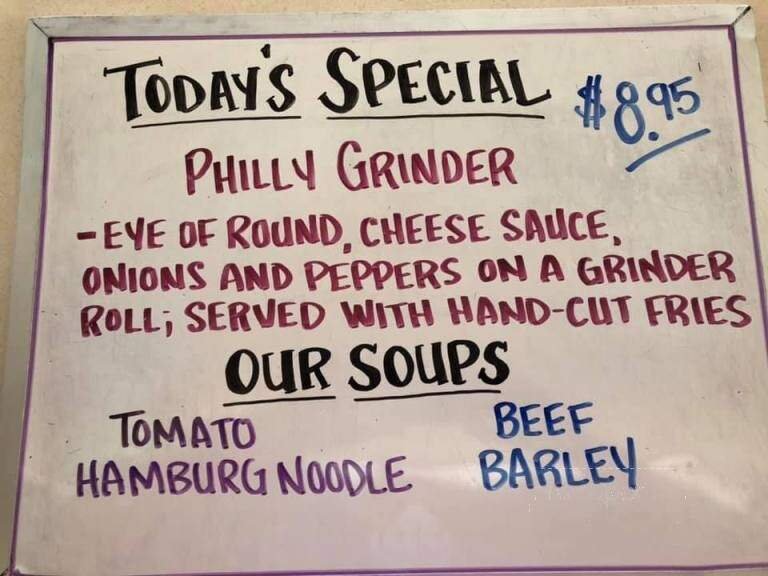 TODAY'S SPECIAL $8.95
PHILLY GRINDER
-EYE OF ROUND, CHEESE SAUCE,
ONIONS AND PEPPERS ON A GRINDER
ROLL; SERVED WITH HAND-CUT FRIES
OUR SOUPS
TOMATO
HAMBURG NOODLE
BEEF
BARLEY